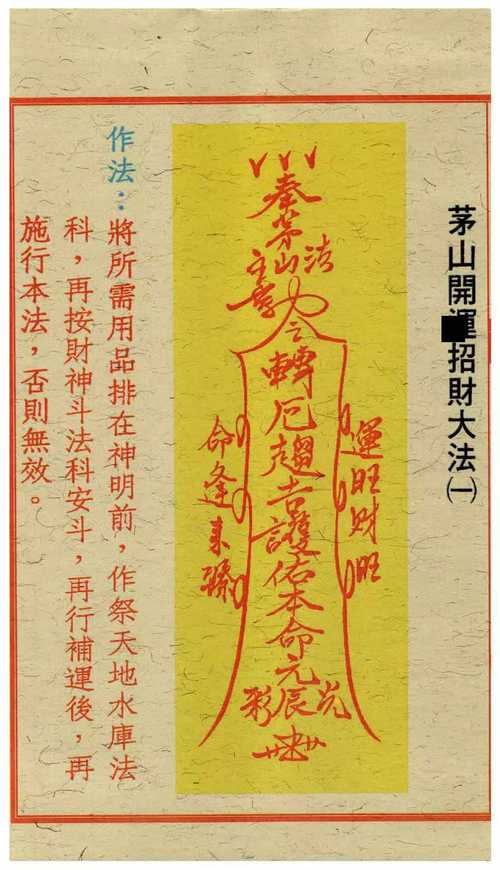 茅山開運招財大法㈠
奉茅山法主
轉厄趨吉護佑本命元辰光彩
運旺财旺
命逢
作法：將所需用品排在神明前，作祭天地水庫法
科，再按財神斗法科安斗，再行補運後，再
施行本法，否則無效。